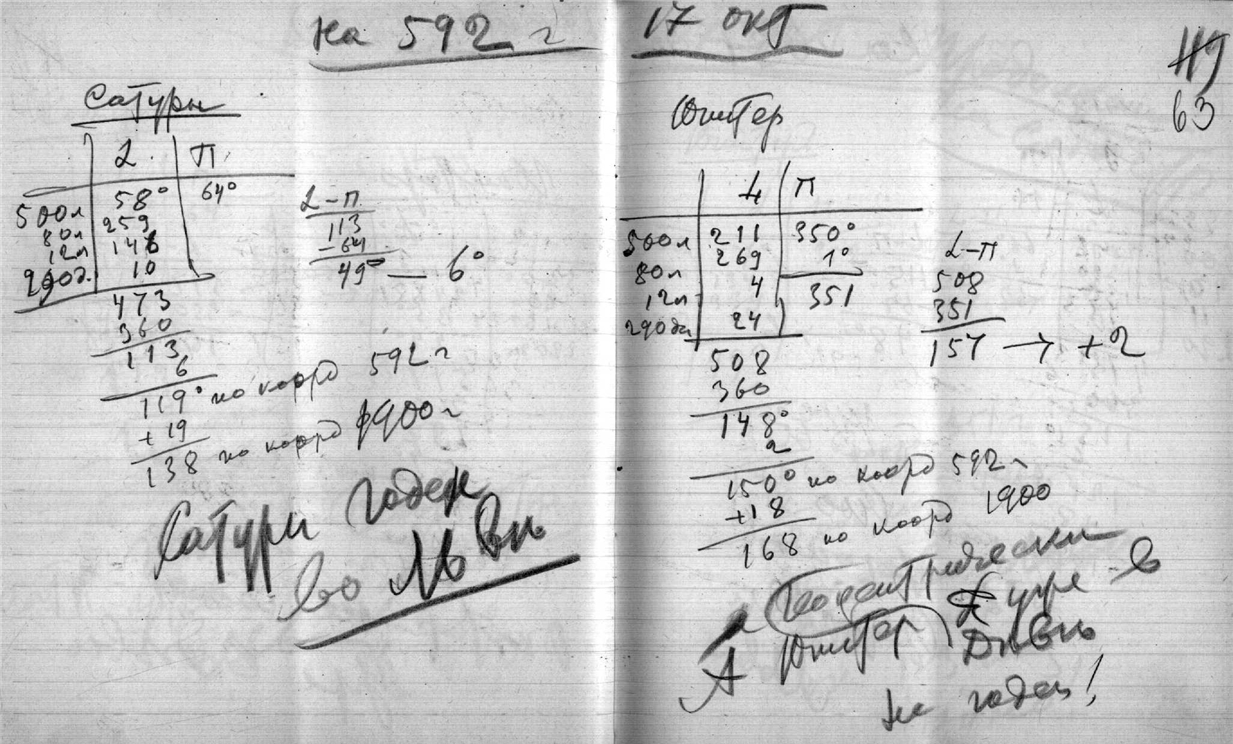 на 592 г 17 окт
119
63
Сатурн
L П
500л 58° 64°
80л 259
12л 146
290д. 10
473
360
113
6
119° по коорд 592 г
+ 19
138 по коорд 1900 г
L-П
113
-64
49° — 6°
Сатурн годен
во Льве
Юпитер
L П
500л 211 350°
80л 269 1°
12л 4 351
290дн 24
508
360
148°
2
150° по коорд 592 г
+18
168 по коорд 1900
L-П
508
351
157 → +2
Геоцентрически
А Юпитер в
Деве
не годен!